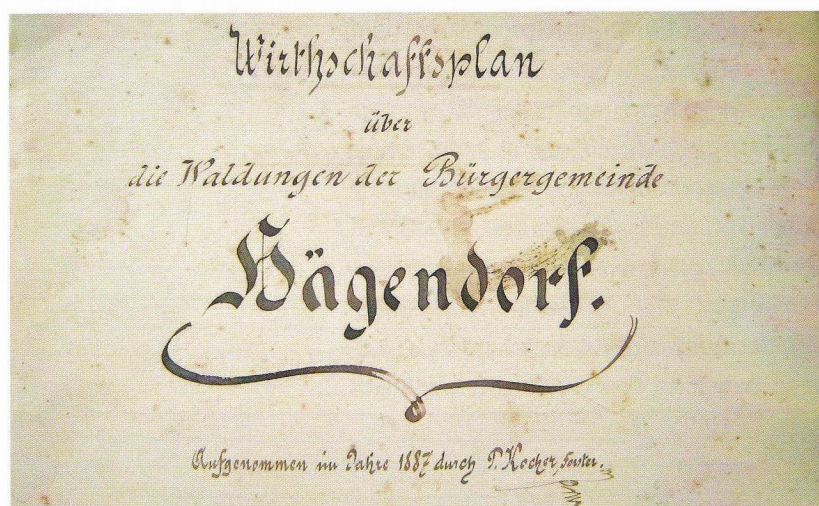 Wirthschaftsplan
über
die Waldungen der Bürgergemeinde
Hägendorf.
Aufgenommen im Jahre 1887 durch P. Kocher, Förster.